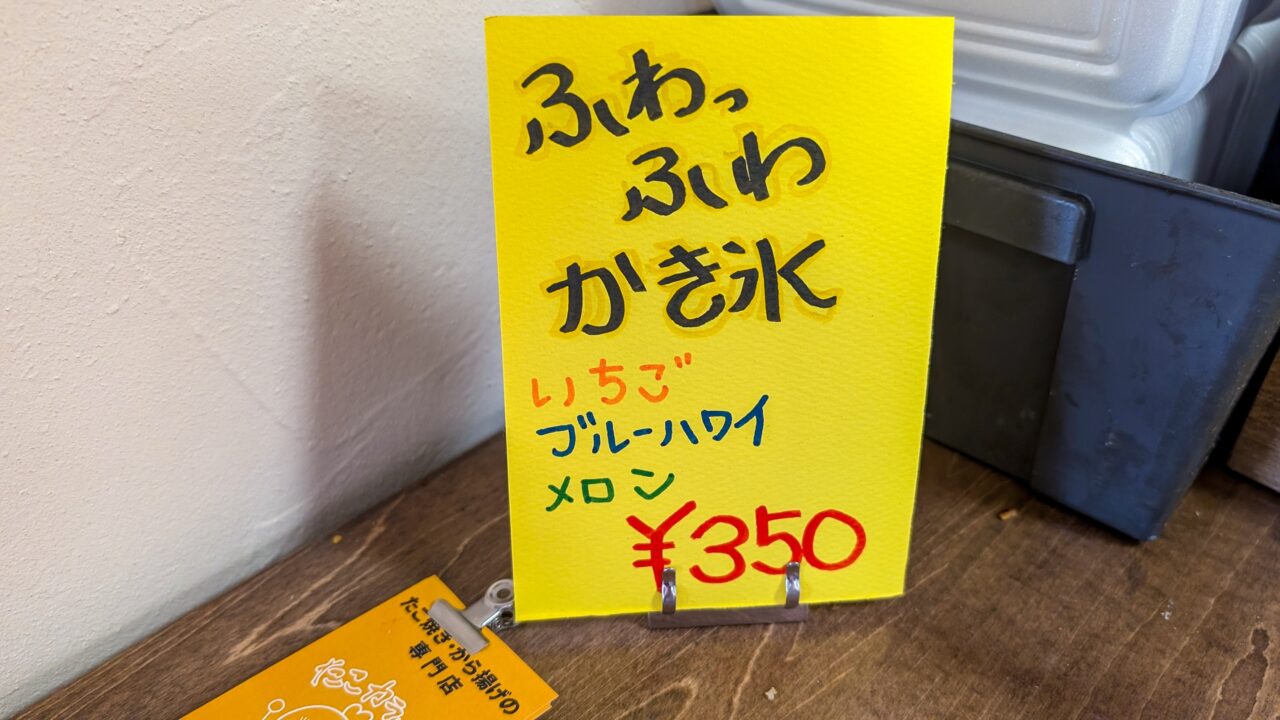 ふわっ
ふわ
かき氷
いちご
ブルーハワイ
メロン
¥350
たこ焼き・から揚げの
専門店
たこから